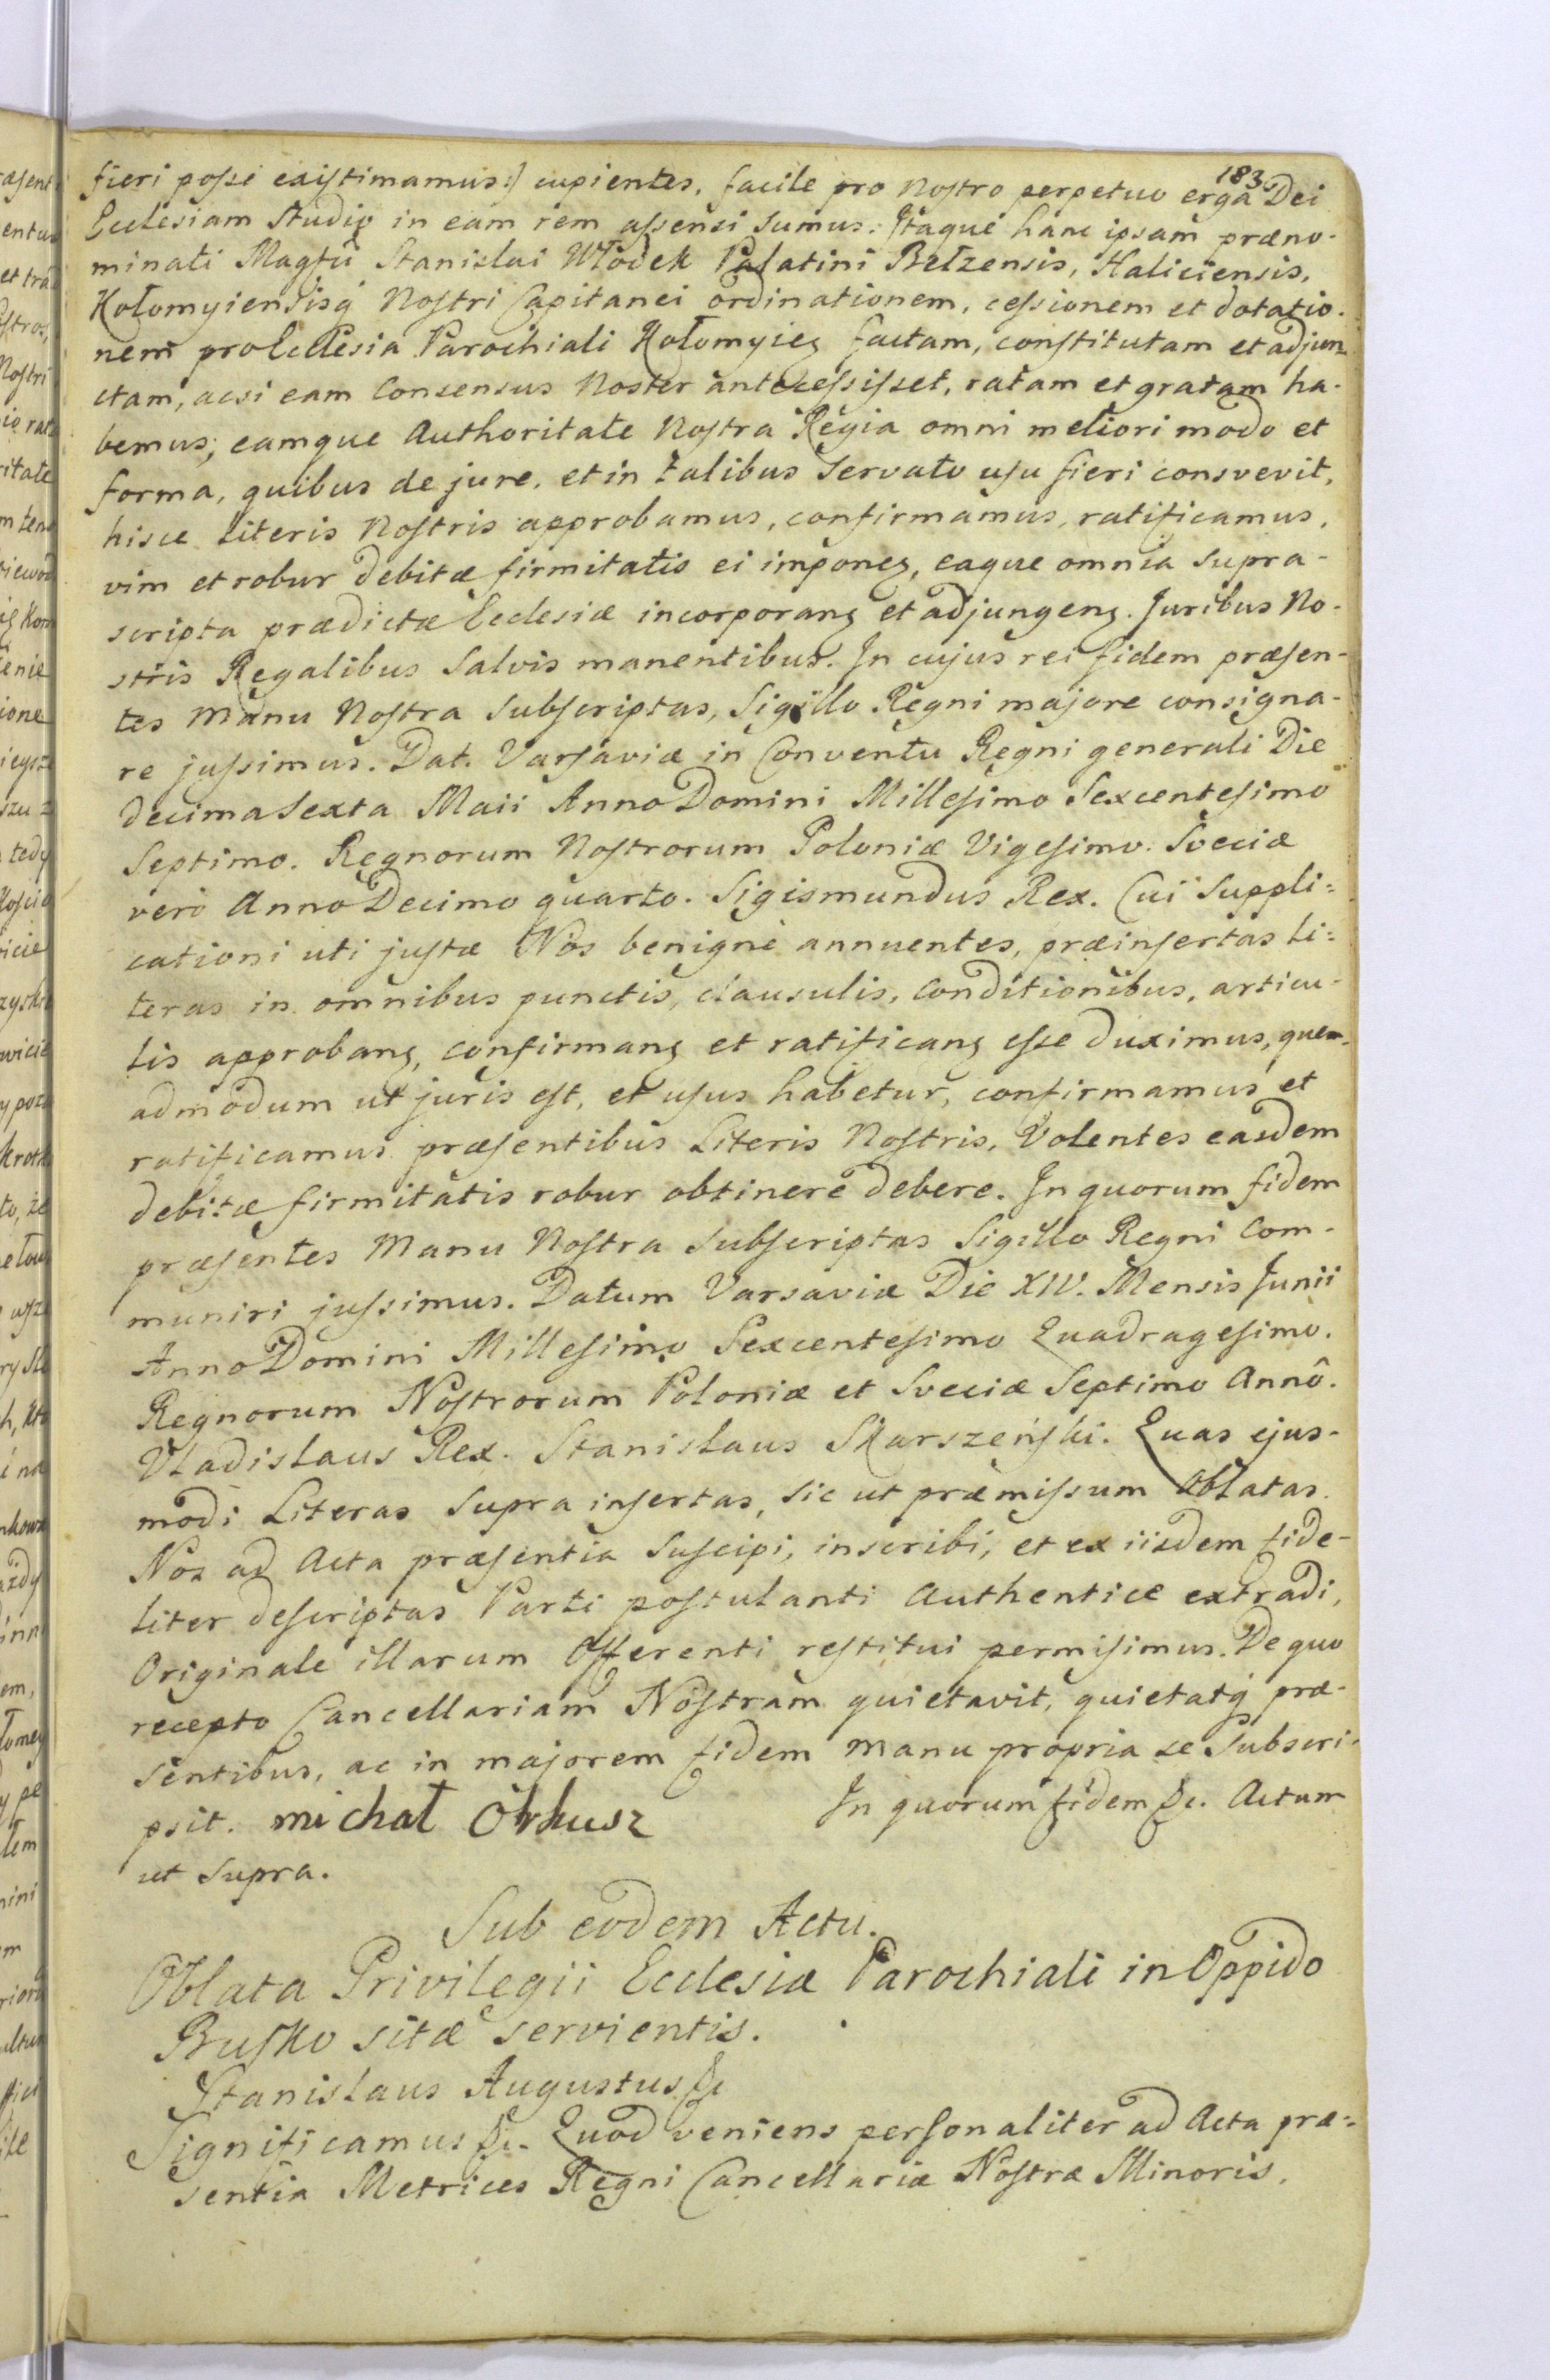 183
fieri posse existimamus:) cupientes, facile pro Nostro perpetuo erga Dei
Ecclesiam Studio in eam rem assensi sumus. Itaque hanc ipsam præno-
minati Magfci Stanislai Włodek Palatini Bełzensis, Haliciensis,
Kołomyiensisq Nostri Capitanei ordinationem, cessionem et dotatio-
nem pro Ecclesia Parochiali Kołomyien factam, constitutam et adjun-
ctam, acsi eam Consensus Noster antecessisset, ratam et gratam ha-
bemus; eamque Authoritate Nostra Regia omni meliori modo et
forma, quibus de jure, et in talibus servato usu fieri consvevit,
hisce Literis Nostris approbamus, confirmamus, ratificamus,
vim et robur debitæ firmitatis ei imponen, eaque omnia supra-
scripta prædictæ Ecclesiæ incorporan et adjungen. Juribus No-
stris Regalibus salvis manentibus. In cujus rei fidem præsen-
tes Manu Nostra subscriptas, Sigillo Regni majore consigna-
re jussimus. Dat. Varsaviæ in Conventu Regni generali Die
decima sexta Maii Anno Domini Millesimo Sexcentesimo
Septimo. Regnorum Nostrorum Poloniæ Vigesimo. Sveciæ
verò Anno Decimo quarto. Sigismundus Rex. Cui Suppli=
cationi uti justæ Nos benignè annuentes, præinsertas Li=
teras in omnibus punctis, clausulis, Conditionibus, articu-
lis approban, confirman et ratifican esse duximus, quem-
admodum ut juris est, et usus habetur, confirmamus et
ratificamus præsentibus Literis Nostris, Volentes easdem
debitæ firmitatis robur obtinere debere. In quorum fidem
præsentes Manu Nostra subscriptas Sigillo Regni Com-
muniri jussimus. Datum Varsaviæ Die XIV. Mensis Junii
Anno Domini Millesimo Sexcentesimo Quadragesimo.
Regnorum Nostrorum Poloniæ et Sveciæ Septimo Annô.
Vladislaus Rex. Stanislaus Skarszeński. Quas ejus-
modi Literas supra insertas, sic ut præmissum Oblatas
Nos ad Acta præsentia suscipi, inscribi, et ex iisdem fide-
liter descriptas Parti postulanti Authentice extradi,
Originale illarum Offerenti restitui permisimus. De quo
recepto Cancellariam Nostram quietavit, quietatq præ-
sentibus, ac in majorem fidem manu propria se subscri-
psit. michał Orkusz In quorum fidem &c. Actum
ut supra.
Sub eodem Actu.
Oblata Privilegii Ecclesiæ Parochiali in Oppido
Busko sitæ servientis.
Stanislaus Augustus &c
Significamus &c. Quod veniens personaliter ad Acta præ=
sentia Metrices Regni Cancellariæ Nostræ Minoris,